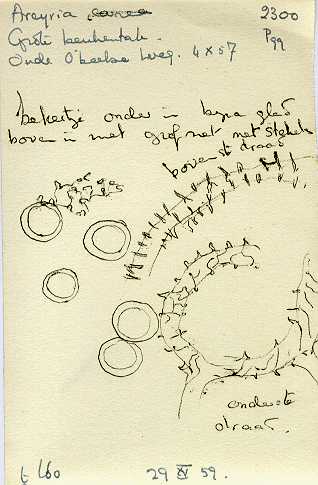 Arcyria cinerea 2300
Grote beukentak. P99
Oude O'beekse weg. 4 x 57
bekertje onder in byna glad
boven in met grof net met stekels
bovenste draad
onderste
draad.
t 160 29 XI 59.